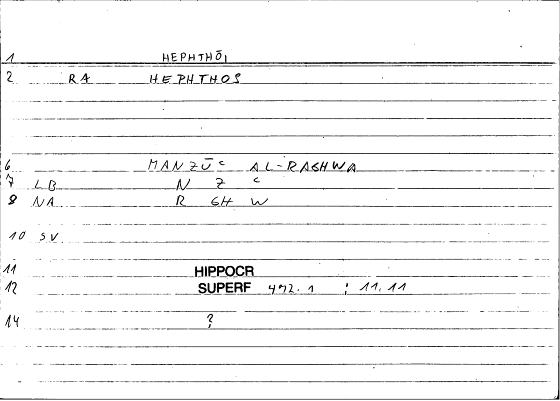 1 HEPHTHŌI
2 RA HEPHTHOS
6 MANZŪ῾ AL-RAGHWA
7 LB N Z ῾
8 NA R GH W
10 SV
11 HIPPOCR
12 SUPERF 472.1 ; 11,11
14 ?